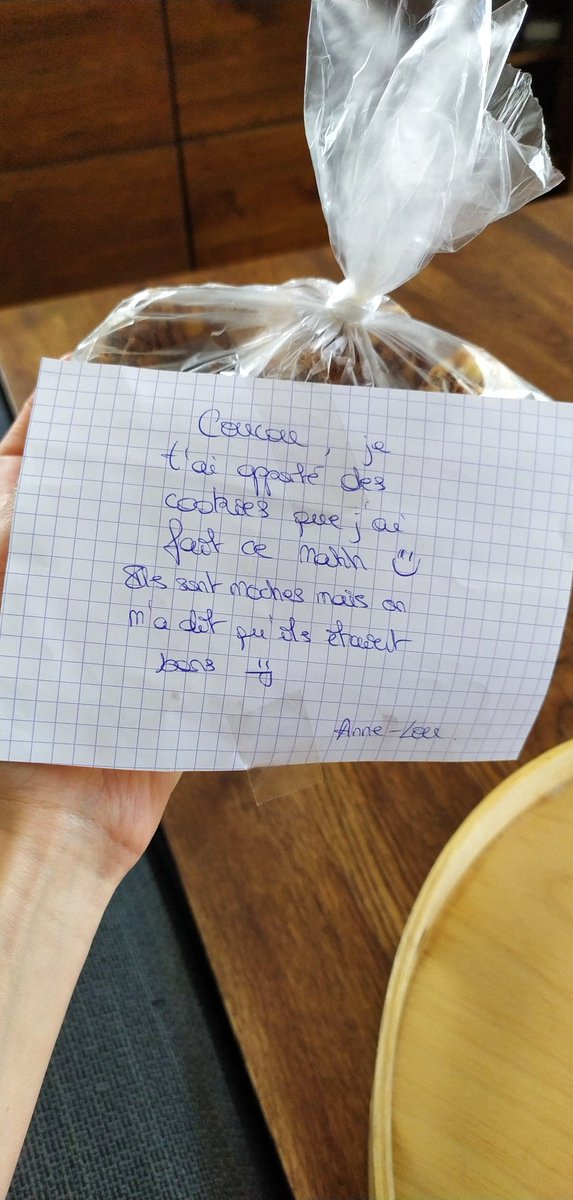 Coucou, je
t'ai apporté des
cookies que j'ai
fait ce matin
Ils sont moches mais on
m'a dit qu'ils étaient
bons
Anne-Lou